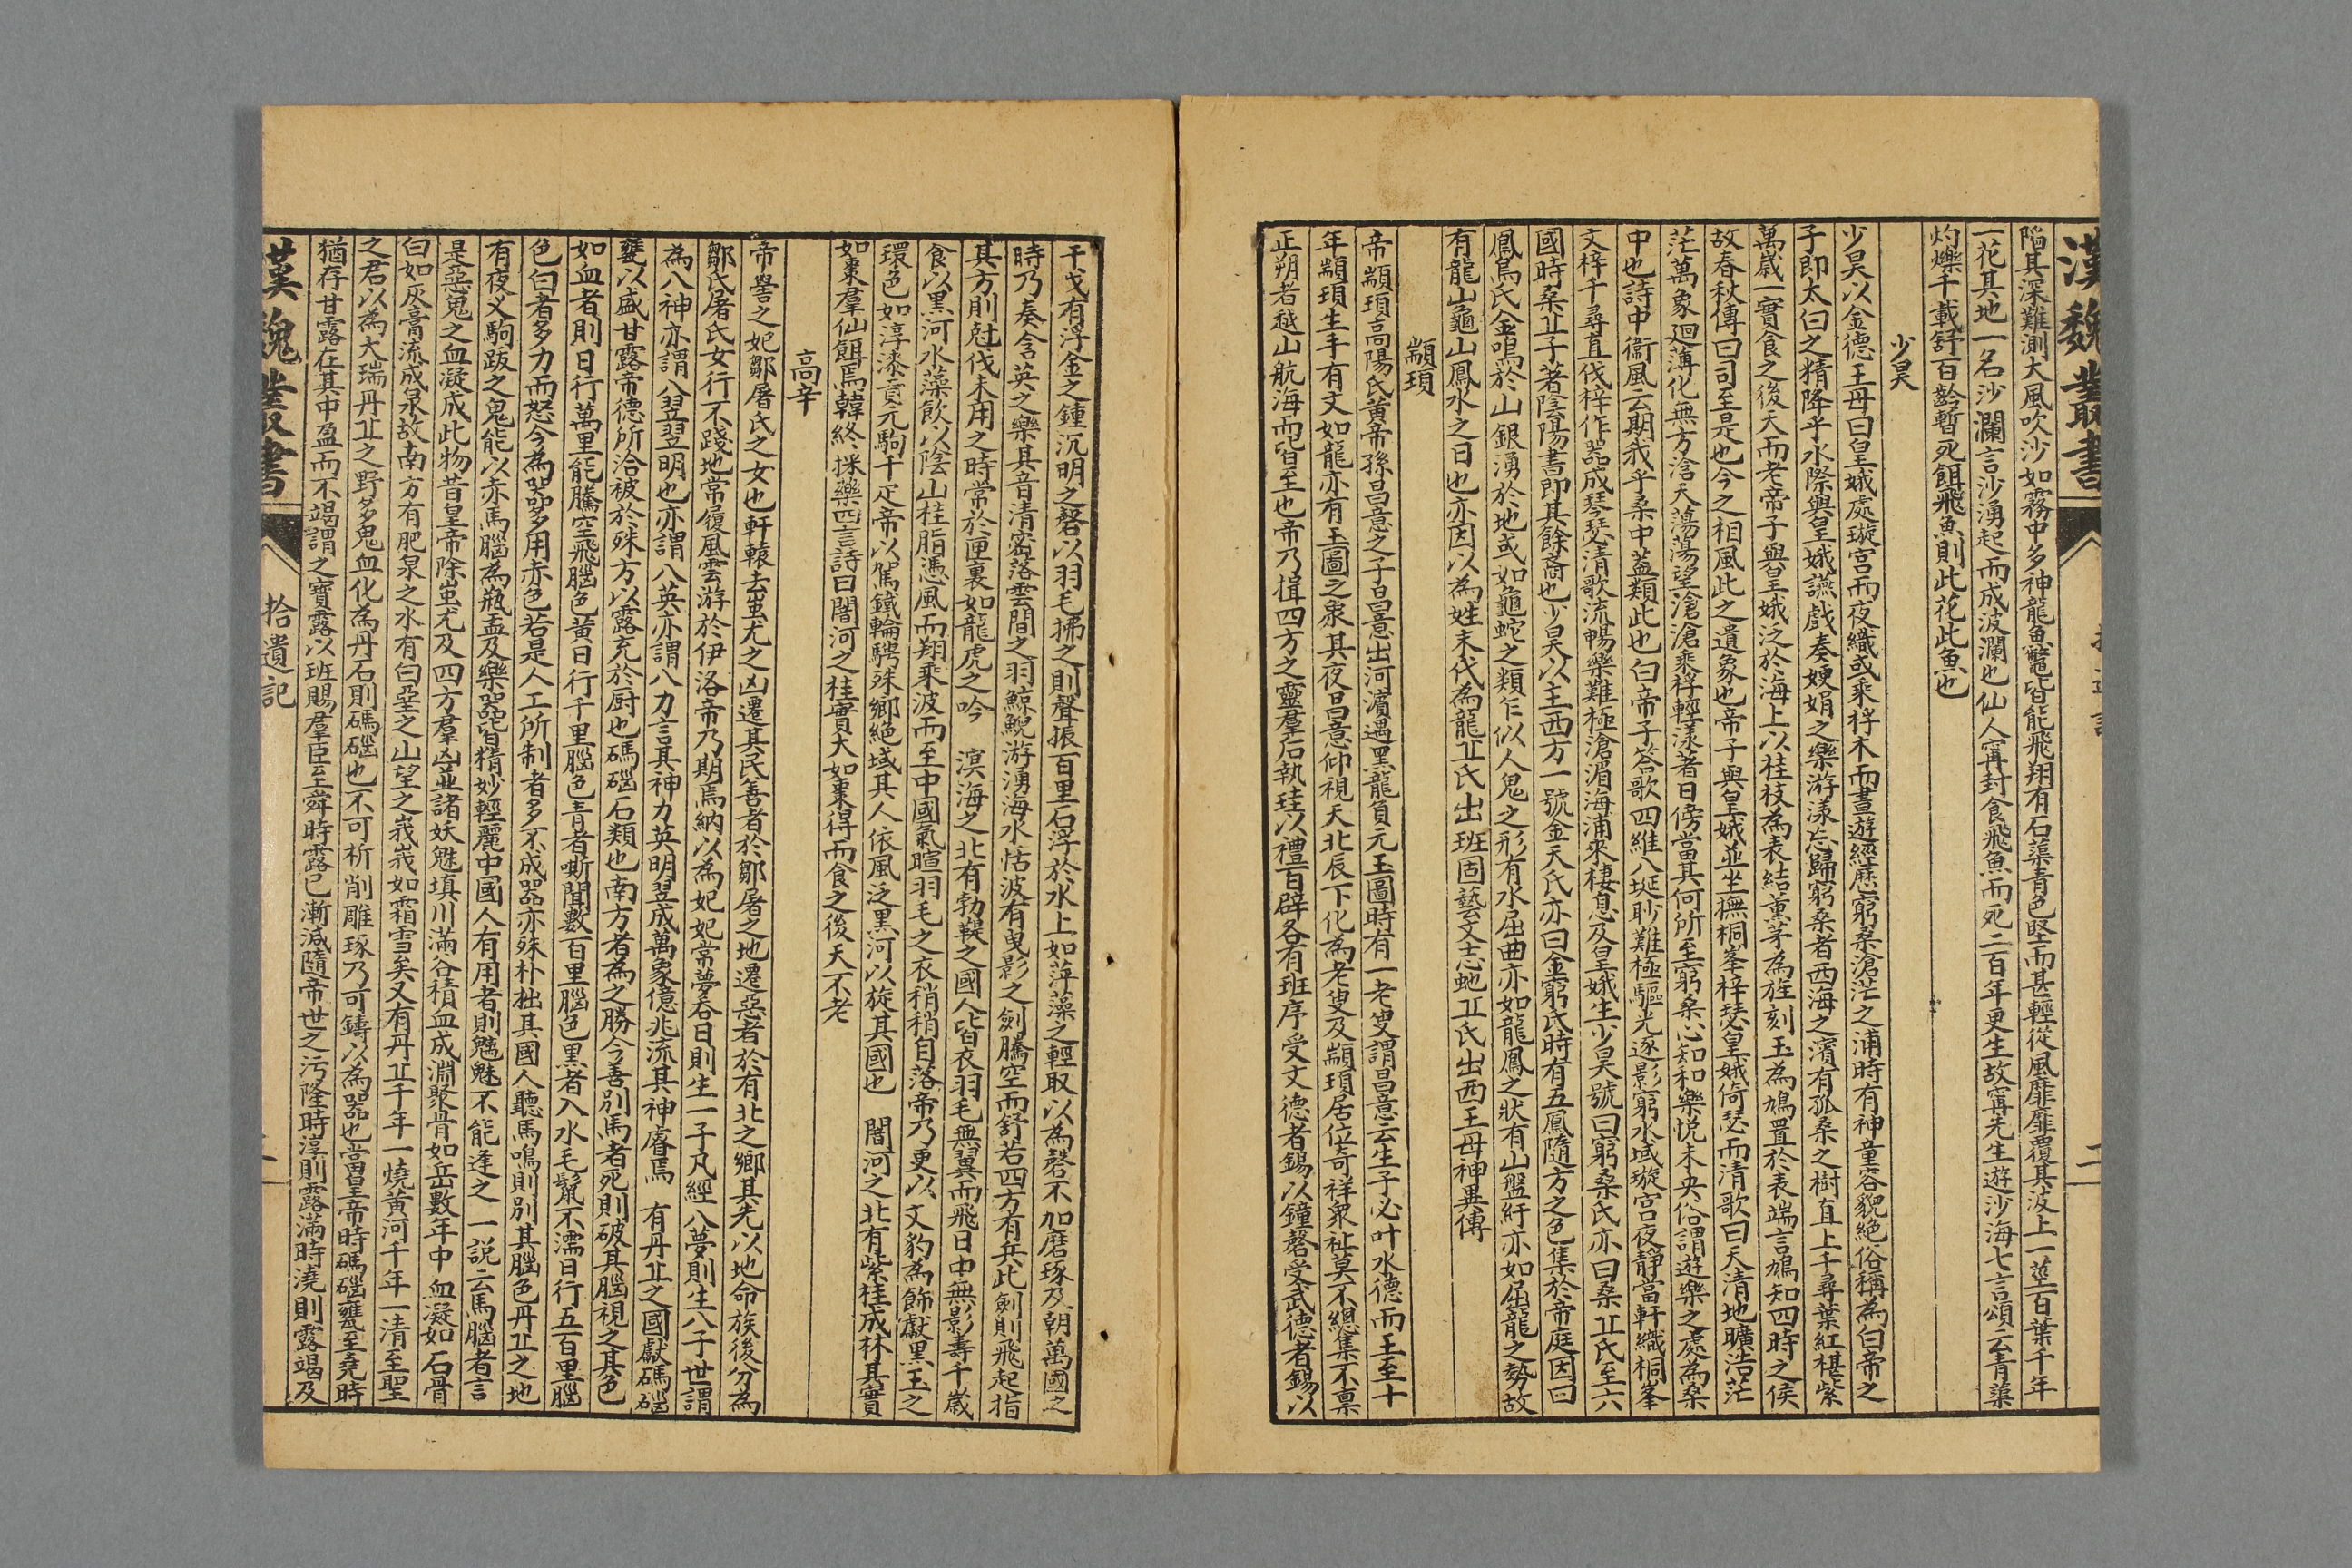 漢魏叢書
二
陷其深難測大風吹沙如霧中多神龍魚鼈皆能飛翔有石蕖青色堅而甚輕從風靡靡覆其波上一莖百葉千年
一花其地一名沙瀾言沙湧起而成波瀾也仙人甯封食飛魚而死二百年更生故甯先生遊沙海七言頌云青蕖
灼爍千載舒百齡暫死餌飛魚則此花此魚也
少昊
少昊以金德王母曰皇娥處璇宮而夜織或乘桴木而晝遊經歷窮桑滄茫之浦時有神童容貌絶俗稱為白帝之
子即太白之精降乎水際與皇娥讌戲奏㛹娟之樂游漾忘歸窮桑者西海之濱有孤桑之樹直上千尋葉紅椹紫
萬歲一實食之後天而老帝子與皇娥泛於海上以桂枝為表結薰茅為旌刻玉為鳩置於表端言鳩知四時之候
故春秋傳曰司至是也今之相風此之遺象也帝子與皇娥並坐撫桐峯梓瑟皇娥倚瑟而清歌曰天清地曠浩茫
茫萬象迴薄化無方浛天蕩蕩望滄滄乘桴輕漾著日傍當其何所至窮桑心知和樂悅未央俗謂遊樂之處為桑
中也詩中衞風云期我乎桑中蓋類此也白帝子答歌四維八埏眇難極驅光逐影窮水域璇宮夜靜當軒織桐峯
文梓千尋直伐梓作器成琴瑟清歌流暢樂難極滄湄海浦來棲息及皇娥生少昊號曰窮桑氏亦曰桑丘氏至六
國時桑丘子著陰陽書即其餘裔也少昊以主西方一號金天氏亦曰金窮氏時有五鳳隨方之色集於帝庭因曰
鳳鳥氏金鳴於山銀湧於地或如龜蛇之類乍似人鬼之形有水屈曲亦如龍鳳之狀有山盤紆亦如屈龍之勢故
有龍山龜山鳳水之目也亦因以為姓末代為龍丘氏出班固藝文志蛇丘氏出西王母神異傳
顓頊
帝顓頊高陽氏黃帝孫昌意之子昌意出河濱遇黑龍負元玉圖時有一老叟謂昌意云生子必叶水德而王至十
年顓頊生手有文如龍亦有玉圖之象其夜昌意仰視天北辰下化為老叟及顓頊居位奇祥衆祉莫不總集不禀
正朔者越山航海而皆至也帝乃揖四方之靈羣后執珪以禮百辟各有班序受文德者錫以鐘磬受武德者錫以
干戈有浮金之鍾沉明之磬以羽毛拂之則聲振百里石浮於水上如萍藻之輕取以為磬不加磨琢及朝萬國之
時乃奏含英之樂其音清密落雲間之羽鯨鯢游湧海水恬波有曳影之劍騰空而舒若四方有兵此劍則飛起指
其方則尅伐未用之時常於匣裏如龍虎之吟　溟海之北有勃鞮之國人皆衣羽毛無翼而飛日中無影壽千歲
食以黑河水藻飲以陰山桂脂憑風而翔乘波而至中國氣暄羽毛之衣稍稍自落帝乃更以文豹為飾獻黑玉之
環色如淳漆貢元駒千疋帝以駕鐵輪騁殊鄉絶域其人依風泛黑河以旋其國也　闇河之北有紫桂成林其實
如棗羣仙餌焉韓終採藥四言詩曰闇河之桂實大如棗得而食之後天不老
高辛
帝嚳之妃鄒屠氏之女也軒轅去蚩尤之凶遷其民善者於鄒屠之地遷惡者於有北之鄉其先以地命族後分為
鄒氏屠氏女行不踐地常履風雲游於伊洛帝乃期焉納以為妃妃常夢吞日則生一子凡經八夢則生八子世謂
為八神亦謂八翌翌明也亦謂八英亦謂八力言其神力英明翌成萬象億兆流其神睿焉　有丹丘之國獻碼碯
甕以盛甘露帝德所洽被於殊方以露充於厨也碼碯石類也南方者為之勝今善別馬者死則破其腦視之其色
如血者則日行萬里能騰空飛腦色黃日行千里腦色青者嘶聞數百里腦色黑者入水毛鬣不濡日行五百里腦
色白者多力而怒今為器多用赤色若是人工所制者多不成器亦殊朴拙其國人聽馬鳴則別其腦色丹丘之地
有夜叉駒跋之鬼能以赤馬腦為瓶盂及樂器皆精妙輕麗中國人有用者則魑魅不能逢之一說云馬腦者言
是惡鬼之血凝成此物昔皇帝除蚩尤及四方羣凶並諸妖魅填川滿谷積血成淵聚骨如岳數年中血凝如石骨
白如灰膏流成泉故南方有肥泉之水有白堊之山望之峩峩如霜雪矣又有丹丘千年一燒黃河千年一清至聖
之君以為大瑞丹丘之野多鬼血化為丹石則碼碯也不可斫削雕琢乃可鑄以為器也當皇帝時碼碯甕至堯時
猶存甘露在其中盈而不竭謂之寶露以班賜羣臣至舜時露已漸減隨帝世之污隆時淳則露滿時澆則露竭及
漢魏叢書
拾遺記